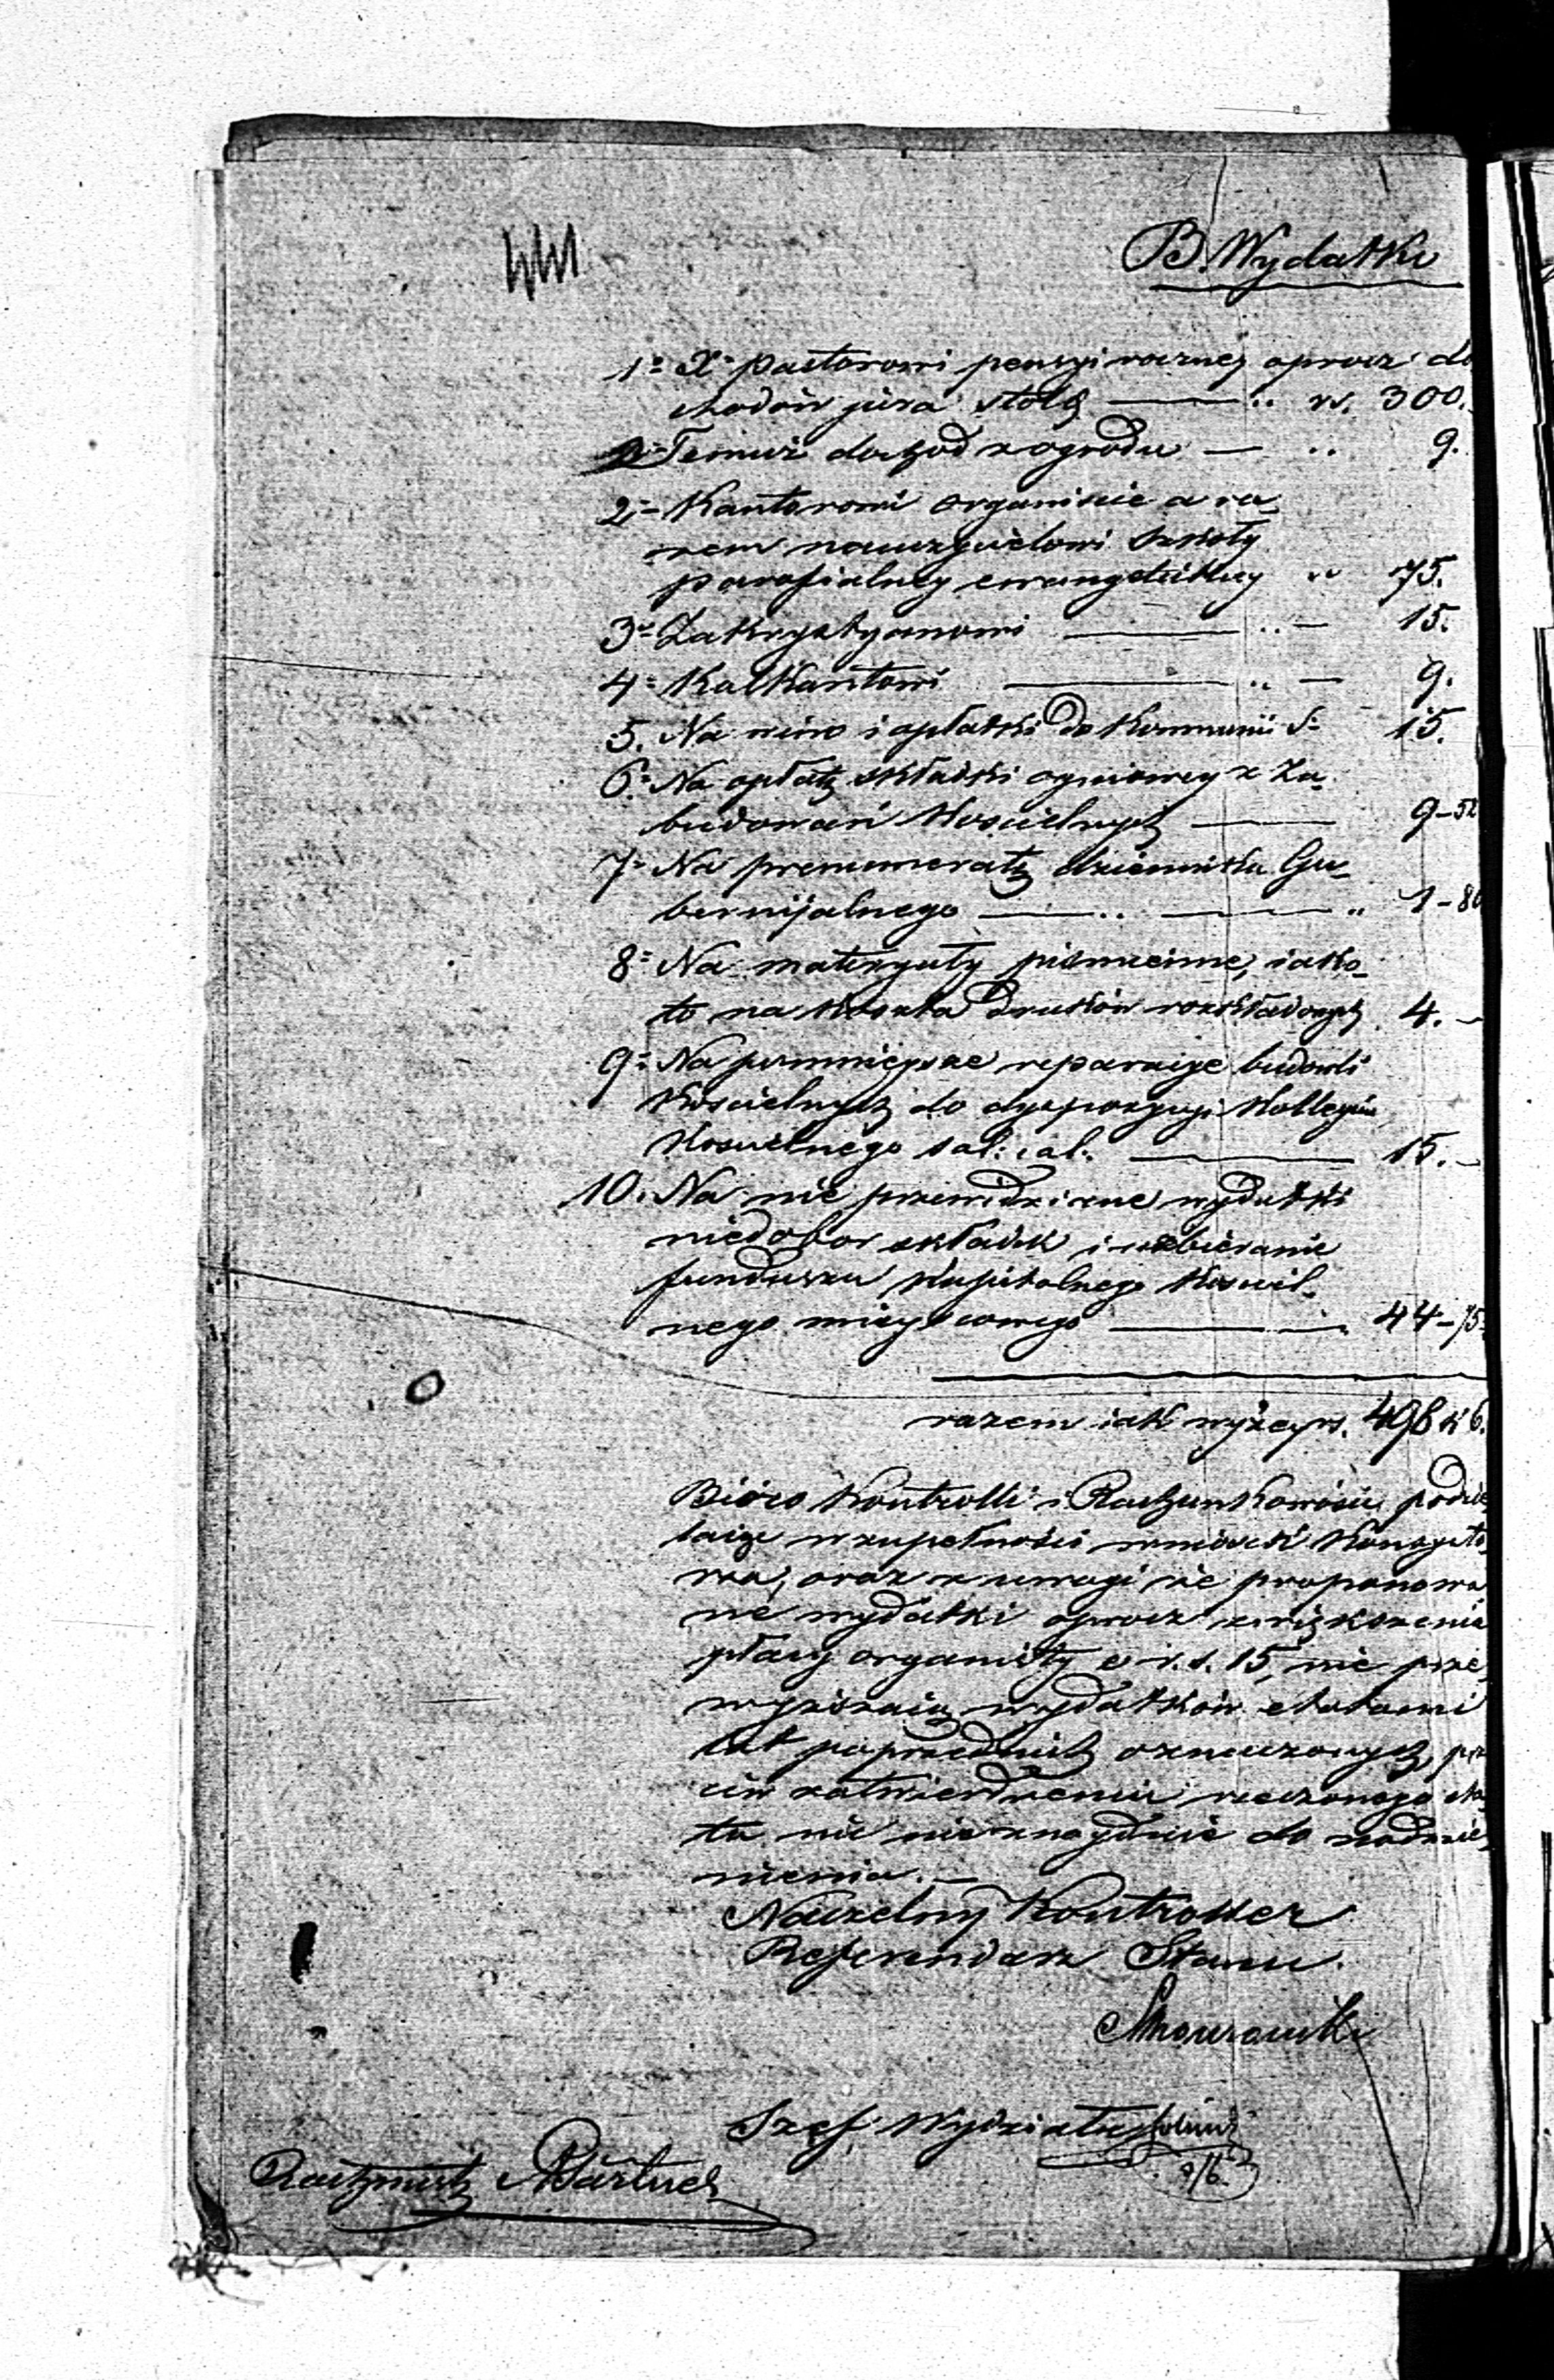 B. Wydatki
1º X. Pastorowi pensyi roczney oprócz do
chodów jura stolæ — rs. 300.
Temuż dochód z ogrodu — 9.
2º Kantorowi organiście a ra-
zem nauczycielowi szkoły
parafialney ewangelickiey 75.
3º Zakrystyanowi — 15.
4º Kalkantowi — 9.
5. Na wino i opłatki do Kommunii S. 15.
6º Na opłatę składki ogniowey z za-
budowań Kościelnych — 9-52
7º Na prenumeratę dziennika Gu-
bernijalnego — 1-80
8º Na materyały piśmienne, iako-
to na koszta druków rozkładowych 4. -
9º Na pomnieysze reparacye budowli
Kościelnych do dyspozycyi Kollegium
Kościelnego sal: cal: — 15. -
10. Na nie przewidziane wydatki
niedobor składek i uzbieranie
funduszu kapitalnego Kościel-
nego mieyscowego — 44-75
razem iak wyżey rs. 498 k 6.
Bióro Kontrolli i Rachunkowości podzie
laiąc w zupełności wniosek Konsysto-
rza, oraz z uwagi że proponowa
ne wydatki oprócz zwiększenia
płacy organisty o r.s. 15, nie prze-
wyższaią wydatków etatami
lat poprzednich oznaczonych, prze
ciw zatwierdzeniu rzeczonego eta-
tu nic nie znayduie do nadmie-
nienia. —
Naczelny Kontroller
Referendarz Stanu.
Szef Wydziału
Rachmistrz Bartsch